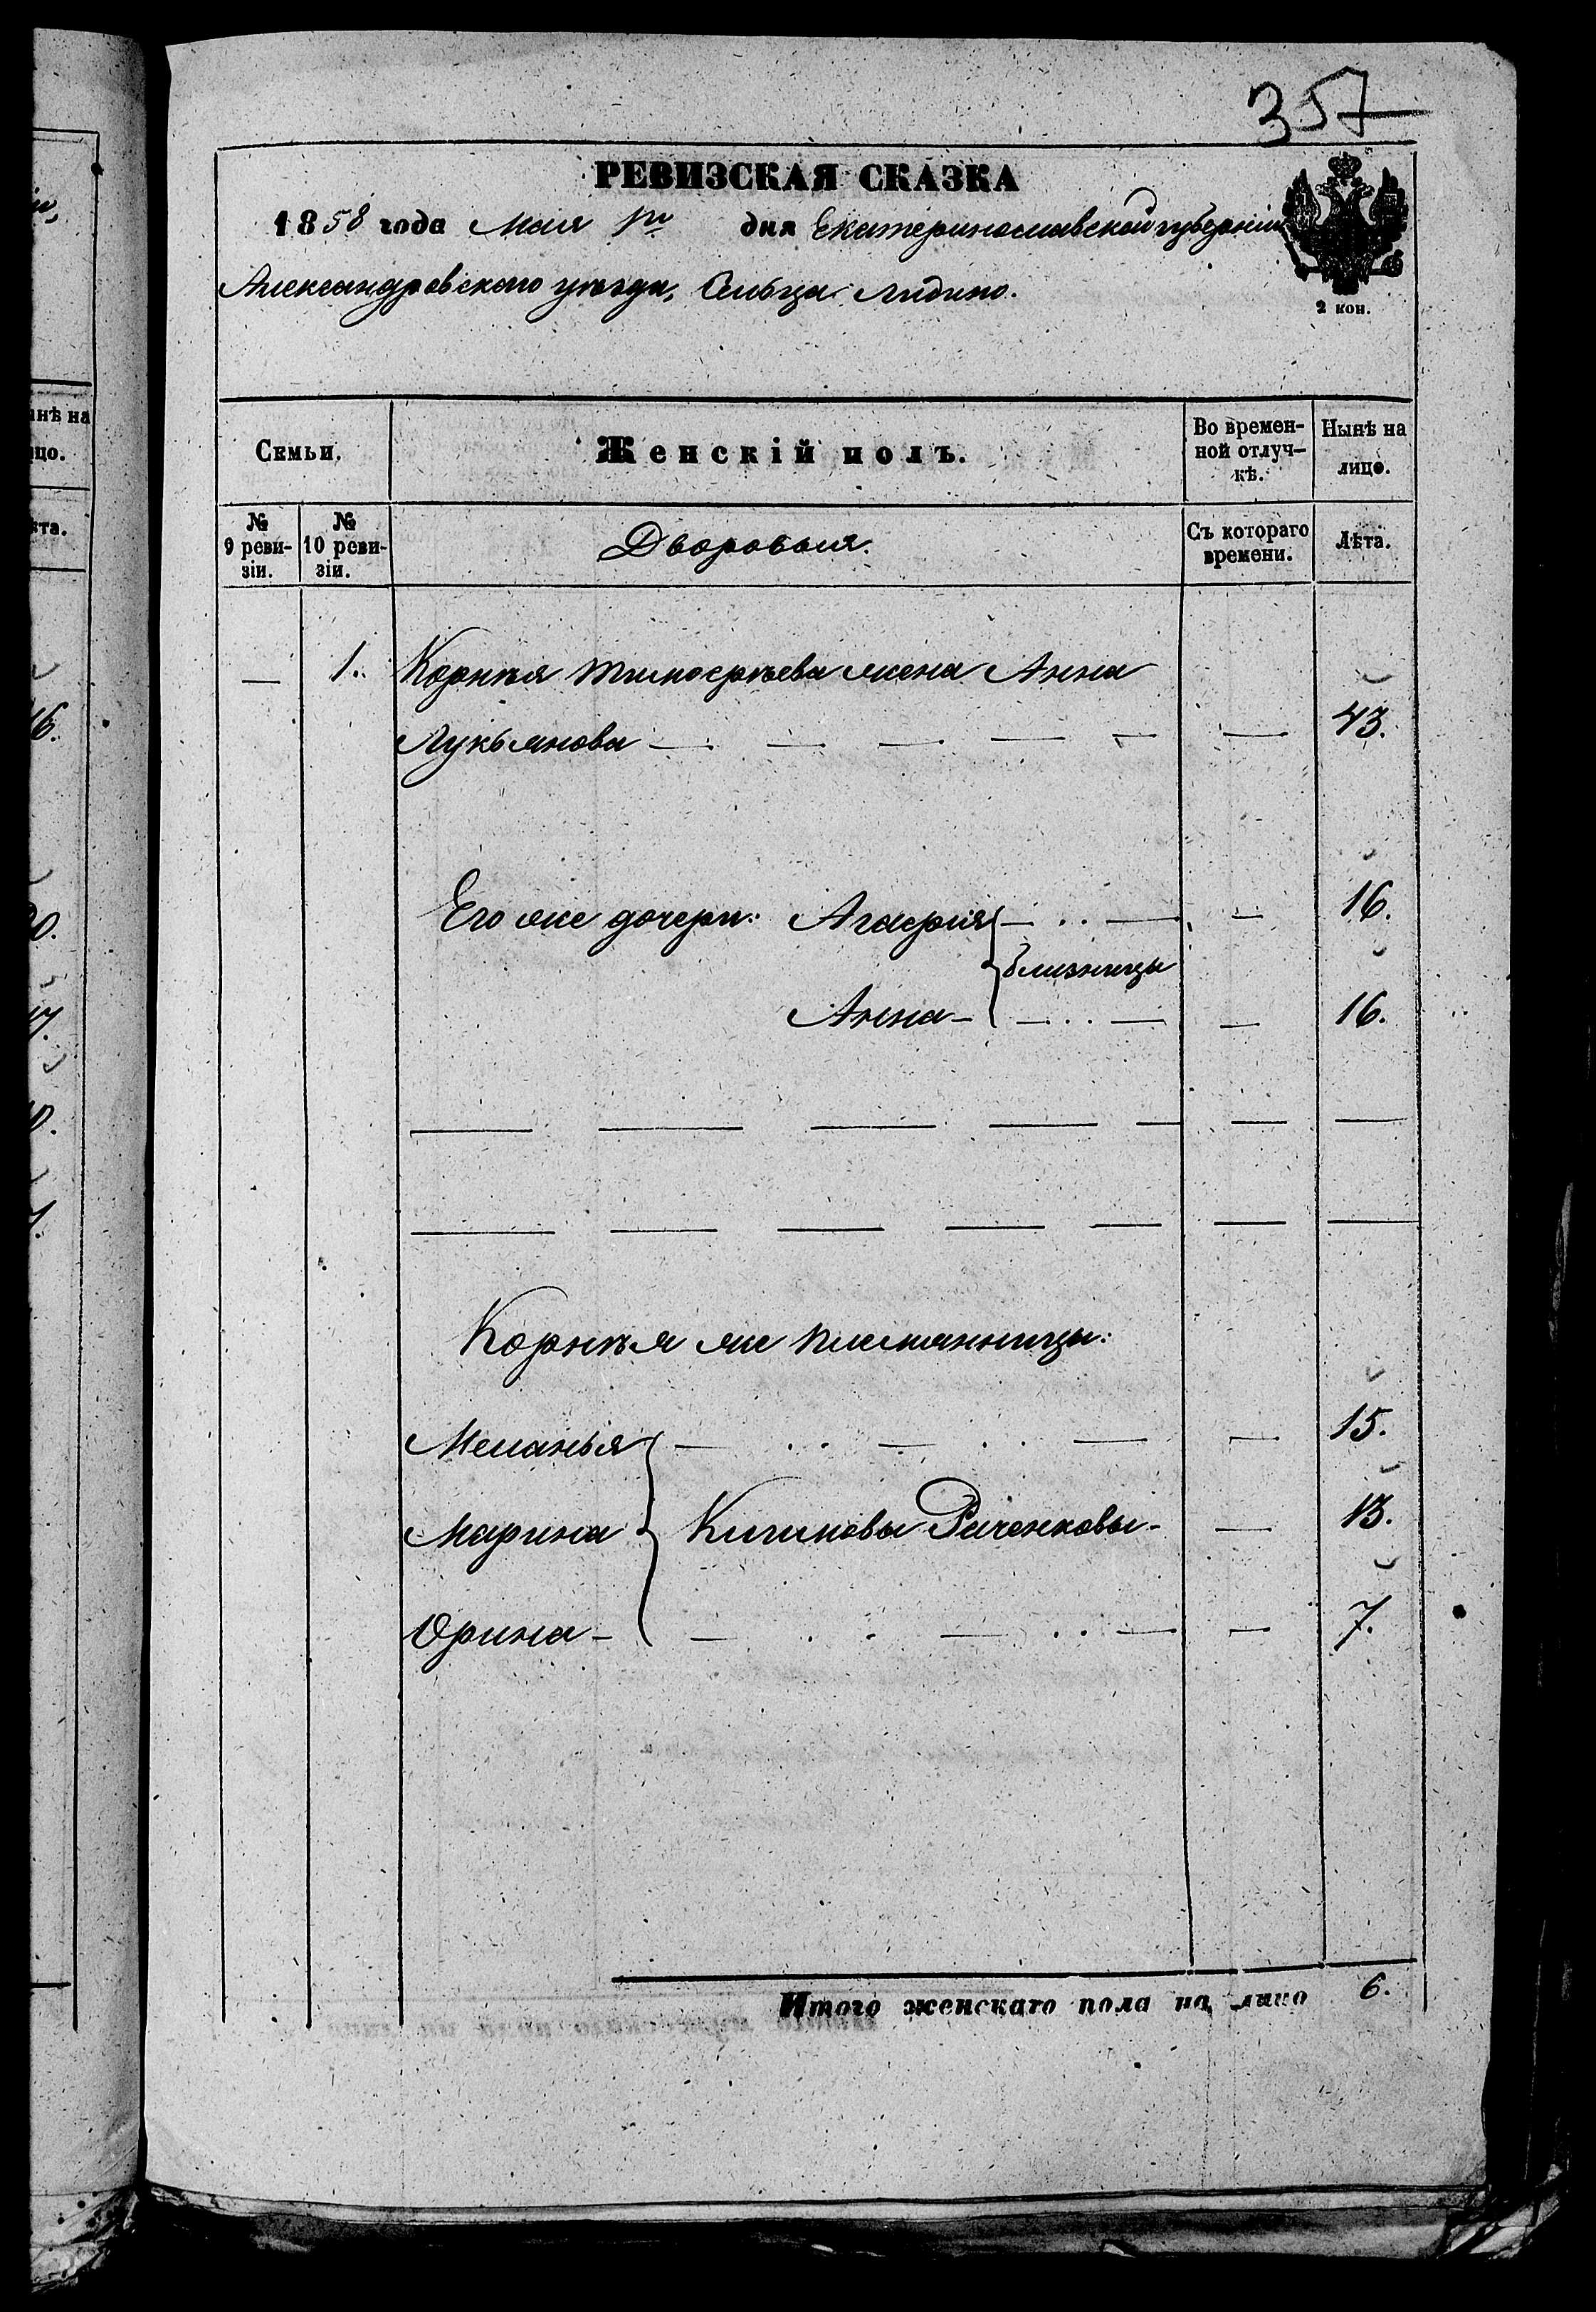 357
РЕВИЗСКАЯ СКАЗКА
1858 года Мая 1го дня Екатеринославской губерніи
Александровскаго уѣзда, Сельца Лидино.
2 коп.
Семьи.
Женскій полъ.
Во времен-
ной отлуч-
кѣ.
Нынѣ на
лицо.
№
9 реви-
зіи.
№
10 реви-
зіи.
Дворовыя.
Съ котораго
времени.
Лѣта.
— 1. Корнѣя Тимофѣева жена Анна
Лукьянова — — — — — — 43.
Его же дочери: Агафія — . . — — 16.
близницы
Анна — — . . — — 16.
Корнѣя же племянницы:
Меланья — . . — . . — — 15.
Марина Климовы Раченковы — — 13.
Орина — — . . — . . — — 7.
Итого женскаго пола на лицо 6.